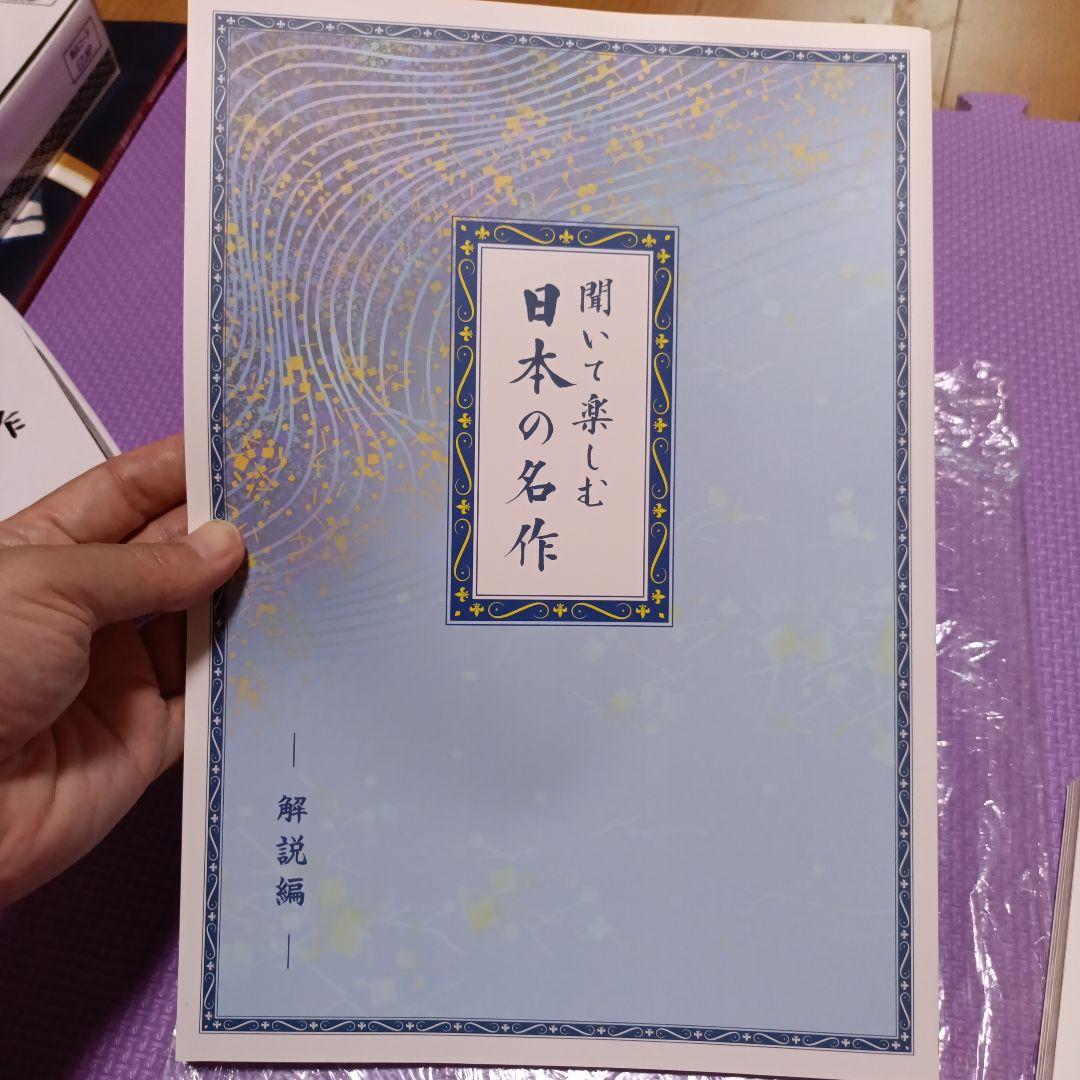 聞いて楽しむ
日本の名作
―解説編―
作